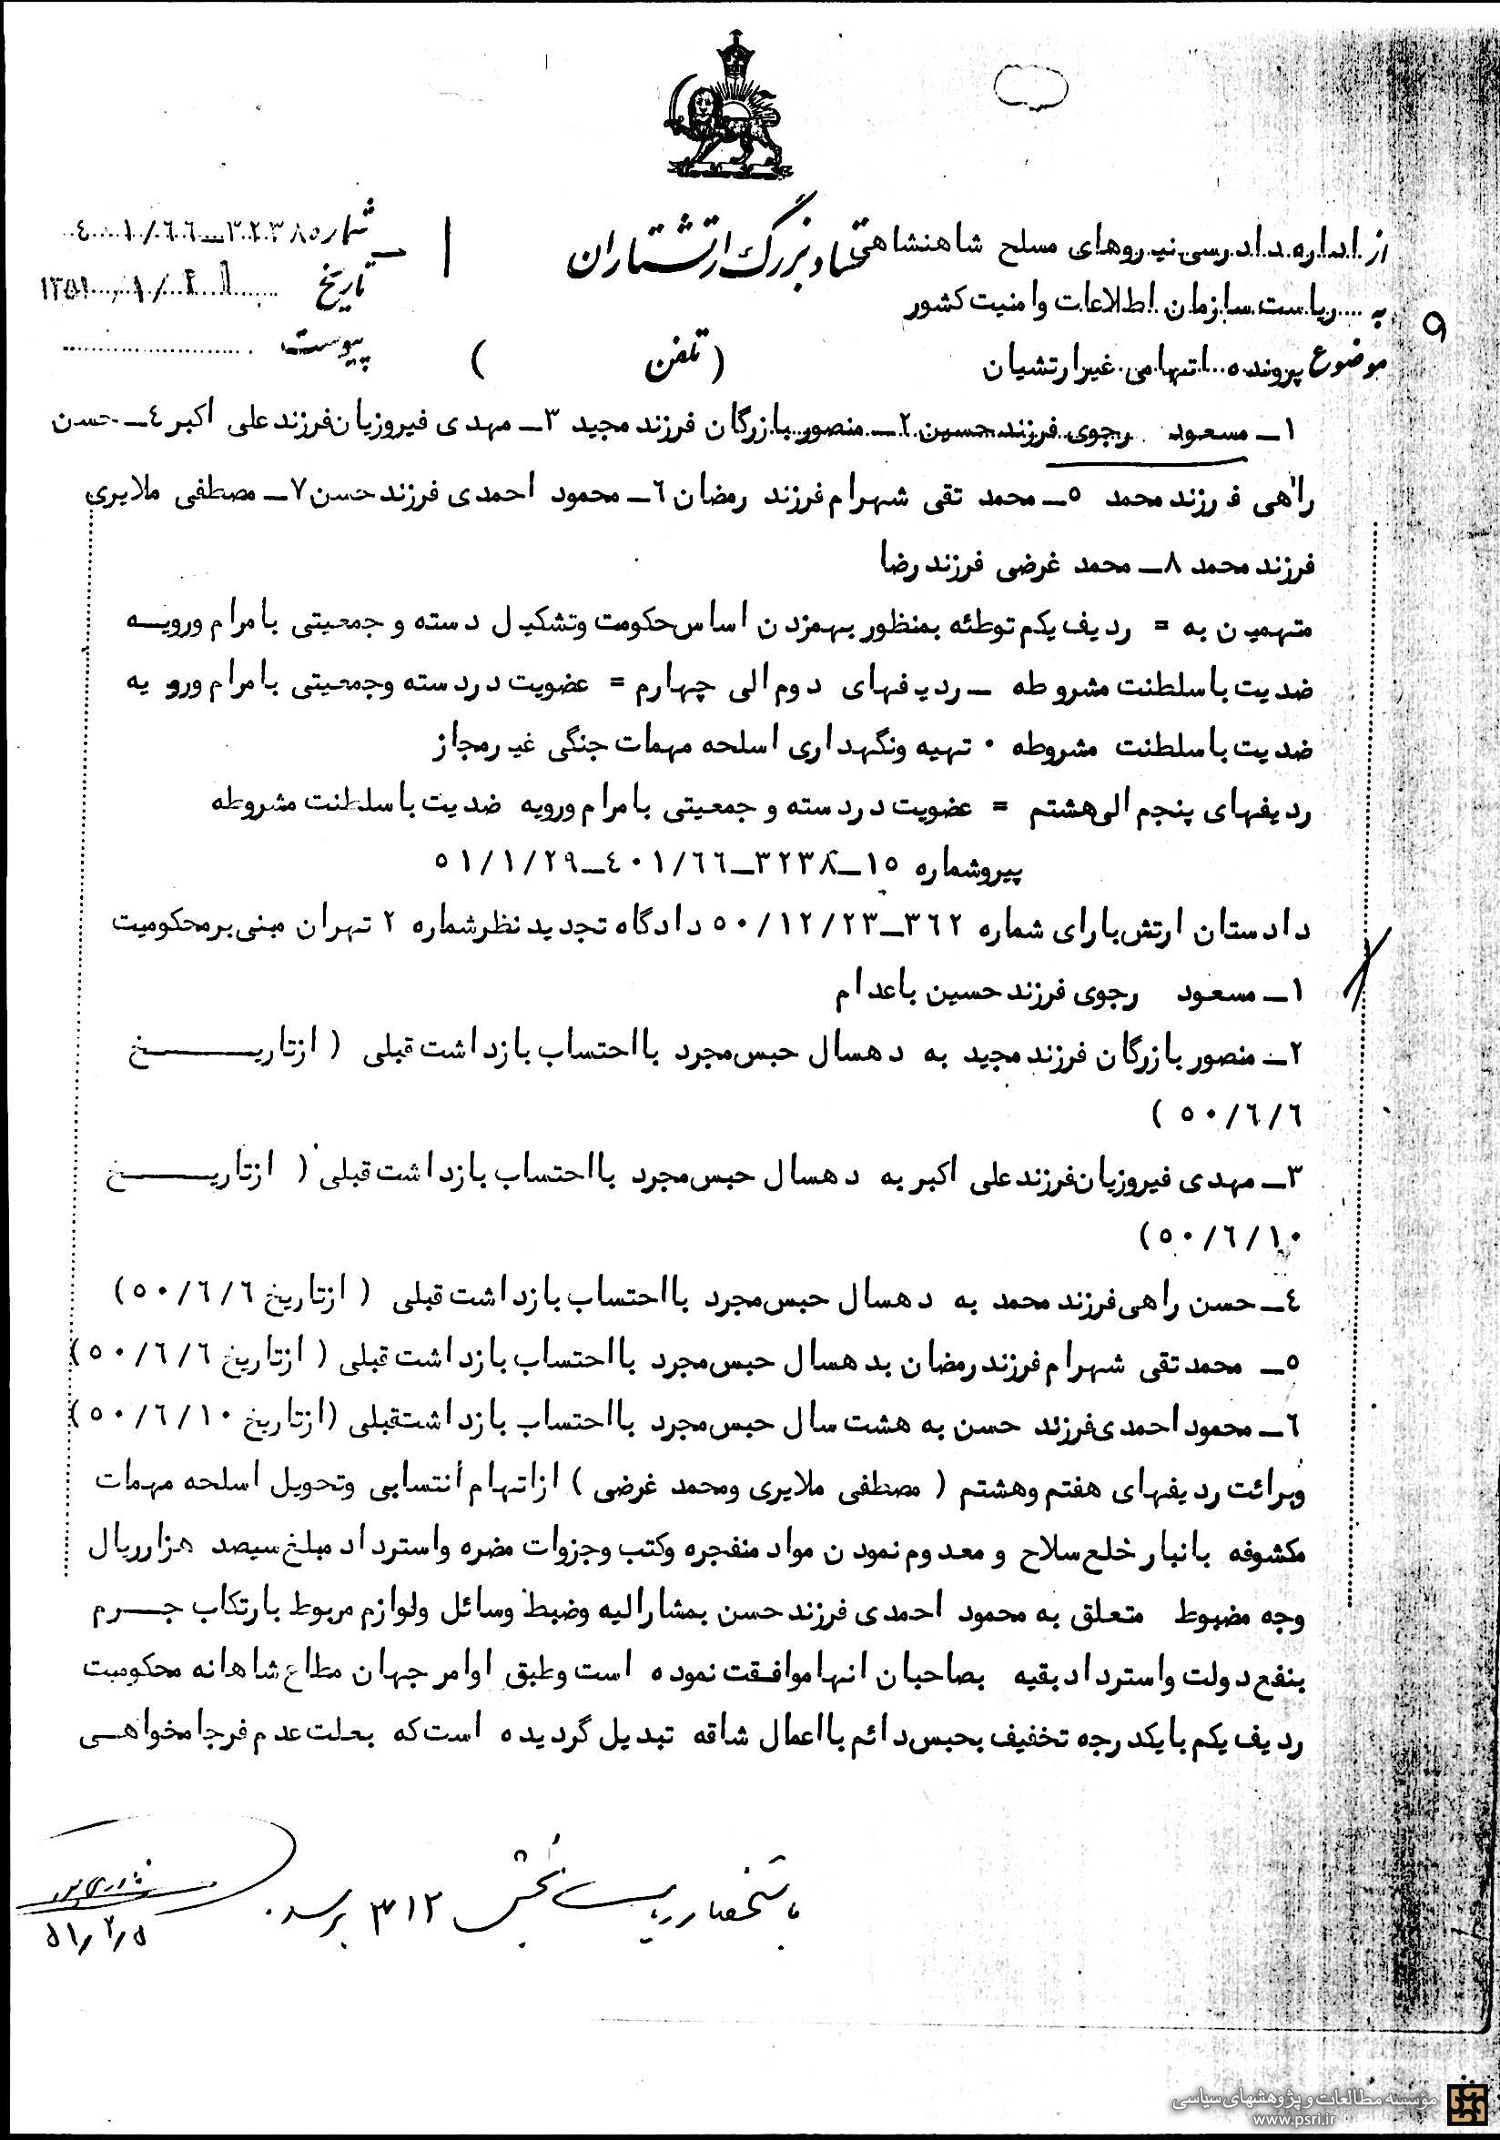 ستاد بزرگ ارتشتاران
از اداره دادرسی نیروهای مسلح شاهنشاهی
به ریاست سازمان اطلاعات و امنیت کشور
موضوع پرونده اتهامی غیر ارتشیان
( تلفن )
شماره ۳۲۳۸۵ــ۴۰۱/۶۶
تاریخ
۱۳۵۱
پیوست
۱ــ مسعود رجوی فرزند حسین ۲ــ منصور بازرگان فرزند مجید ۳ــ مهدی فیروزیان فرزند علی اکبر ۴ــ حسن
راهی فرزند محمد ۵ــ محمد تقی شهرام فرزند رمضان ۶ــ محمود احمدی فرزند حسن ۷ــ مصطفی ملایری
فرزند محمد ۸ــ محمد غرضی فرزند رضا
متهمین به = ردیف یکم توطئه بمنظور بهمزدن اساس حکومت وتشکیل دسته و جمعیتی با مرام ورویه
ضدیت با سلطنت مشروطه ــ ردیفهای دوم الی چهارم = عضویت در دسته وجمعیتی با مرام ورویه
ضدیت با سلطنت مشروطه ۰ تهیه ونگهداری اسلحه مهمات جنگی غیرمجاز
ردیفهای پنجم الی هشتم = عضویت در دسته و جمعیتی با مرام ورویه ضدیت با سلطنت مشروطه
پیروشماره ۱۵ــ۳۲۳۸ــ۴۰۱/۶۶ــ۵۱/۱/۲۹
دادستان ارتش بارای شماره ۳۶۲ــ۵۰/۱۲/۲۳ دادگاه تجدید نظر شماره ۲ تهران مبنی بر محکومیت
۱ــ مسعود رجوی فرزند حسین باعدام
۲ــ منصور بازرگان فرزند مجید به دهسال حبس مجرد با احتساب بازداشت قبلی ( ازتاریخ
۵۰/۶/۶ )
۳ــ مهدی فیروزیان فرزند علی اکبر به دهسال حبس مجرد با احتساب بازداشت قبلی ( ازتاریخ
۵۰/۶/۱۰)
۴ــ حسن راهی فرزند محمد به دهسال حبس مجرد با احتساب بازداشت قبلی ( ازتاریخ ۵۰/۶/۶)
۵ــ محمد تقی شهرام فرزند رمضان بدهسال حبس مجرد با احتساب بازداشت قبلی ( ازتاریخ ۵۰/۶/۶)
۶ــ محمود احمدی فرزند حسن به هشت سال حبس مجرد با احتساب بازداشت قبلی (ازتاریخ ۵۰/۶/۱۰)
وبرائت ردیفهای هفتم وهشتم ( مصطفی ملایری ومحمد غرضی ) از اتهام انتسابی وتحویل اسلحه مهمات
مکشوفه بانبار خلع سلاح و معدوم نمودن مواد منفجره وکتب وجزوات مضره واسترداد مبلغ سیصد هزار ریال
وجه مضبوط متعلق به محمود احمدی فرزند حسن بمشارالیه وضبط وسائل ولوازم مربوط بارتکاب جرم
بنفع دولت واسترداد بقیه بصاحبان انها موافقت نموده است وطبق اوامر جهان مطاع شاهانه محکومیت
ردیف یکم با یکدرجه تخفیف بحبس دائم با اعمال شاقه تبدیل گردیده است که بعلت عدم فرجامخواهی
باستحضار ریاست بخش ۳۱۲ برسد.
۵۱/۲/۵
مؤسسه مطالعات و پژوهشهای سیاسی
www.psri.ir